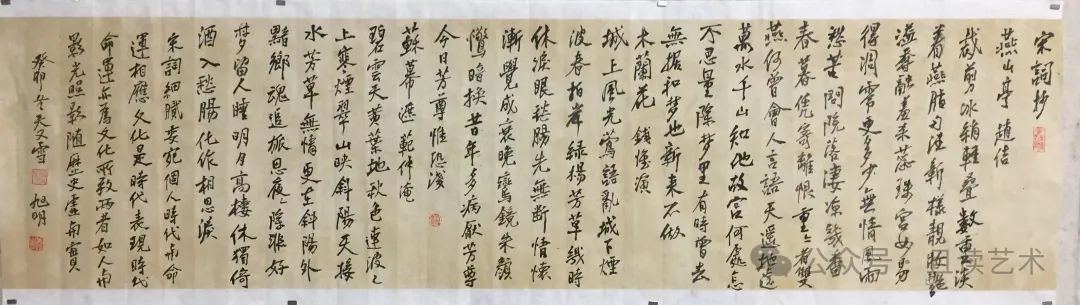 宋詞抄
燕山亭 趙佶
裁剪冰綃輕疊數重淡
着燕脂勻注新樣靚妝艷
溢香融羞杀蕊珠宮女易
得凋零更多少無情風雨
愁苦問院落淒涼幾番
春暮凭寄離恨重々者雙
燕何曾會人言語天遥地遠
萬水千山知他故宮何處怎
不思量除梦里有時曾去
無据和梦也新来不做
木蘭花 錢惟演
城上風光鶯語亂城下煙
波春拍岸緑楊芳草幾時
休淚眼愁腸先無断情懷
漸覺成衰晚鸞鏡朱顏
驚暗换昔年多病厭芳尊
今日芳尊惟恐淺
蘇幕遮 範仲淹
碧雲天黄葉地秋色連波々
上寒煙翠山映斜陽天接
水芳草無情更在斜陽外
黯鄉魂追旅思夜々除非好
梦留人睡明月高樓休獨倚
酒入愁腸化作相思淚
宋詞細膩委宛個人時代命
運相應文化是時代表現時代
命運亦為文化所教两者如人与
影光照影随歷史虚實
癸卯冬天又雪 旭明
公众号·且读艺术